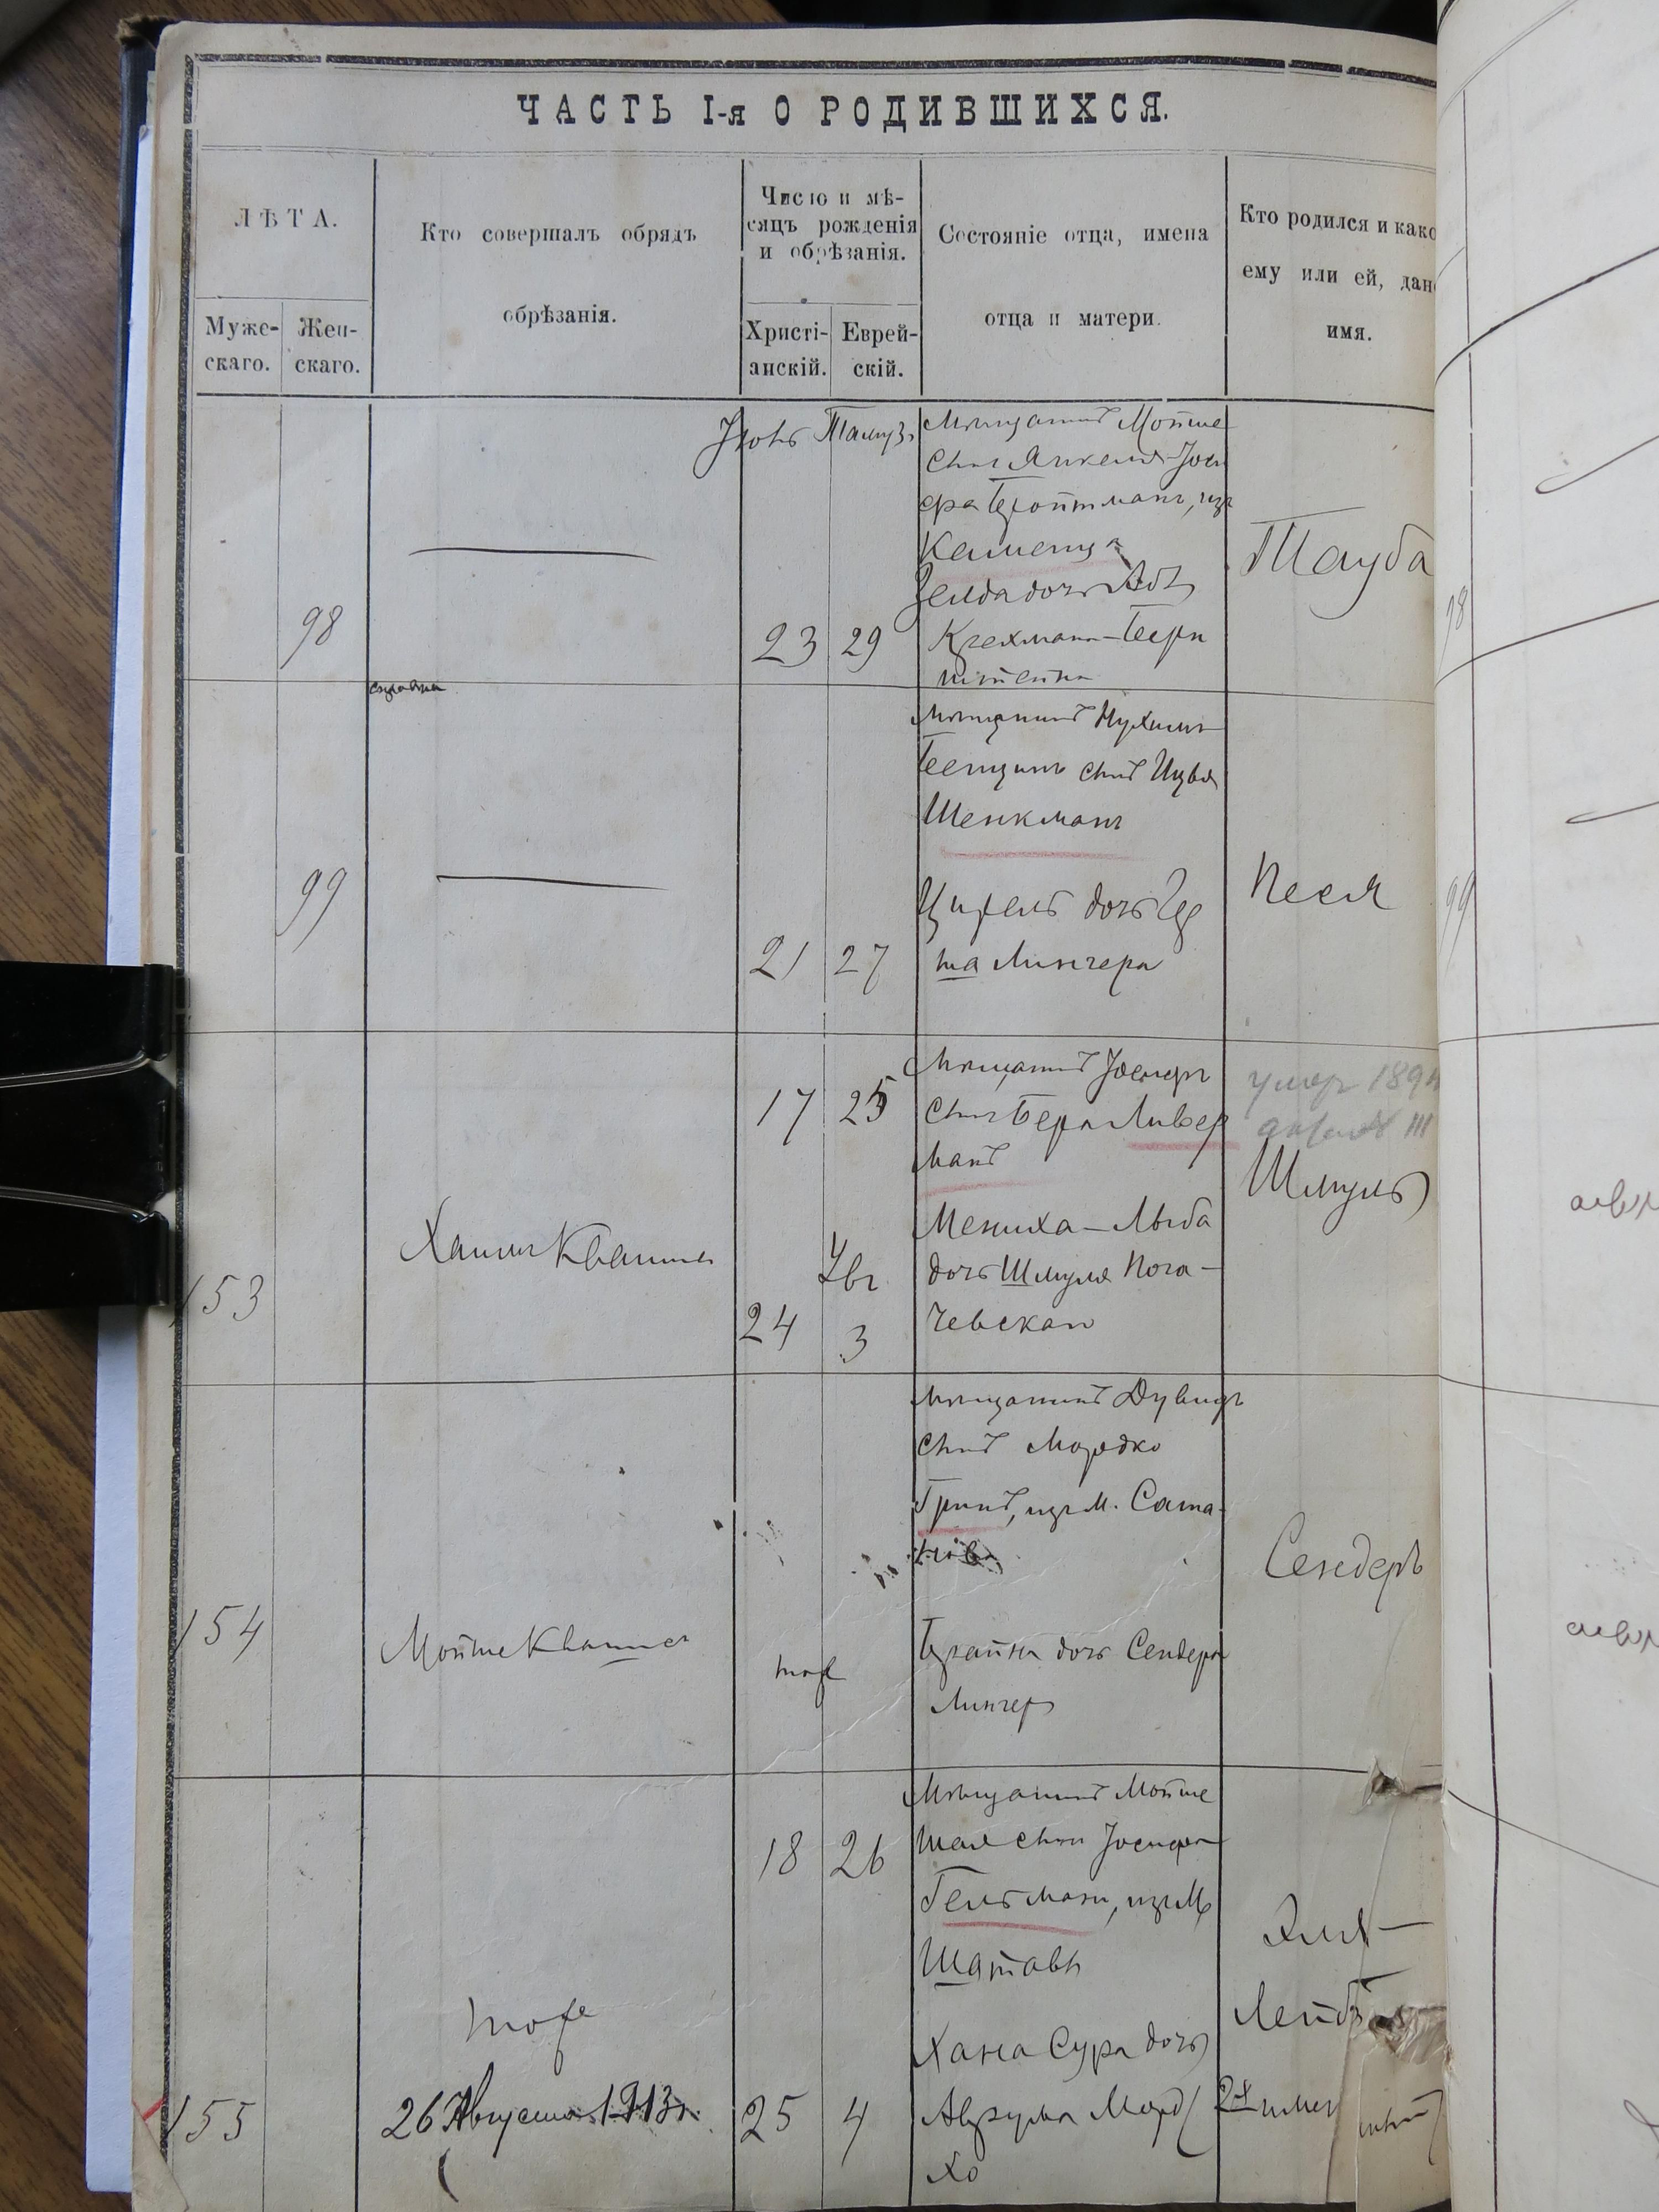 ЧАСТЬ I-я О РОДИВШИХСЯ.
ЛѢТА.
Муже-
скаго.
Жен-
скаго.
Кто совершалъ обрядъ
обрѣзанія.
Число и мѣ-
сяцъ рожденія
и обрѣзанія.
Христі-
анскій.
Еврей-
скій.
Состояніе отца, имена
отца и матери.
Кто родился и како
ему или ей, дано
имя.
98
Іюнь Тамузъ
23 29
Мѣщанинъ Мойше
сынъ Янкеля-Іосі
фа Бройтманъ, изъ
Каменца
Зелда дочь
Тауба
98
99
21 27
Мѣщанинъ Нухимъ
сынъ
Шенкманъ
дочь
Лингера
Песя
99
153
Хаимъ Квашша
17 25
24 3
Мѣщанинъ Іосифъ
сынъ Бера Ливер
манъ
Мениха-Лыба
дочь Шмуля Пога-
чевская
умеръ 189
Шмуль
154
Мойше Квашша
тоже
Мѣщанинъ Дувидъ
сынъ Мордко
Гринъ, изъ м. Сата-
нова
Брайна дочь Сендера
Лингеръ
Сендеръ
155
тоже
26 Августа 1913г.
18 26
25 4
Мѣщанинъ Мойше
Шая сынъ Іосифа
Гельманъ, изъ м
Шатавы
Хана Сура дочь
Аврума Мордъ
ко
Эля-
Лейбъ